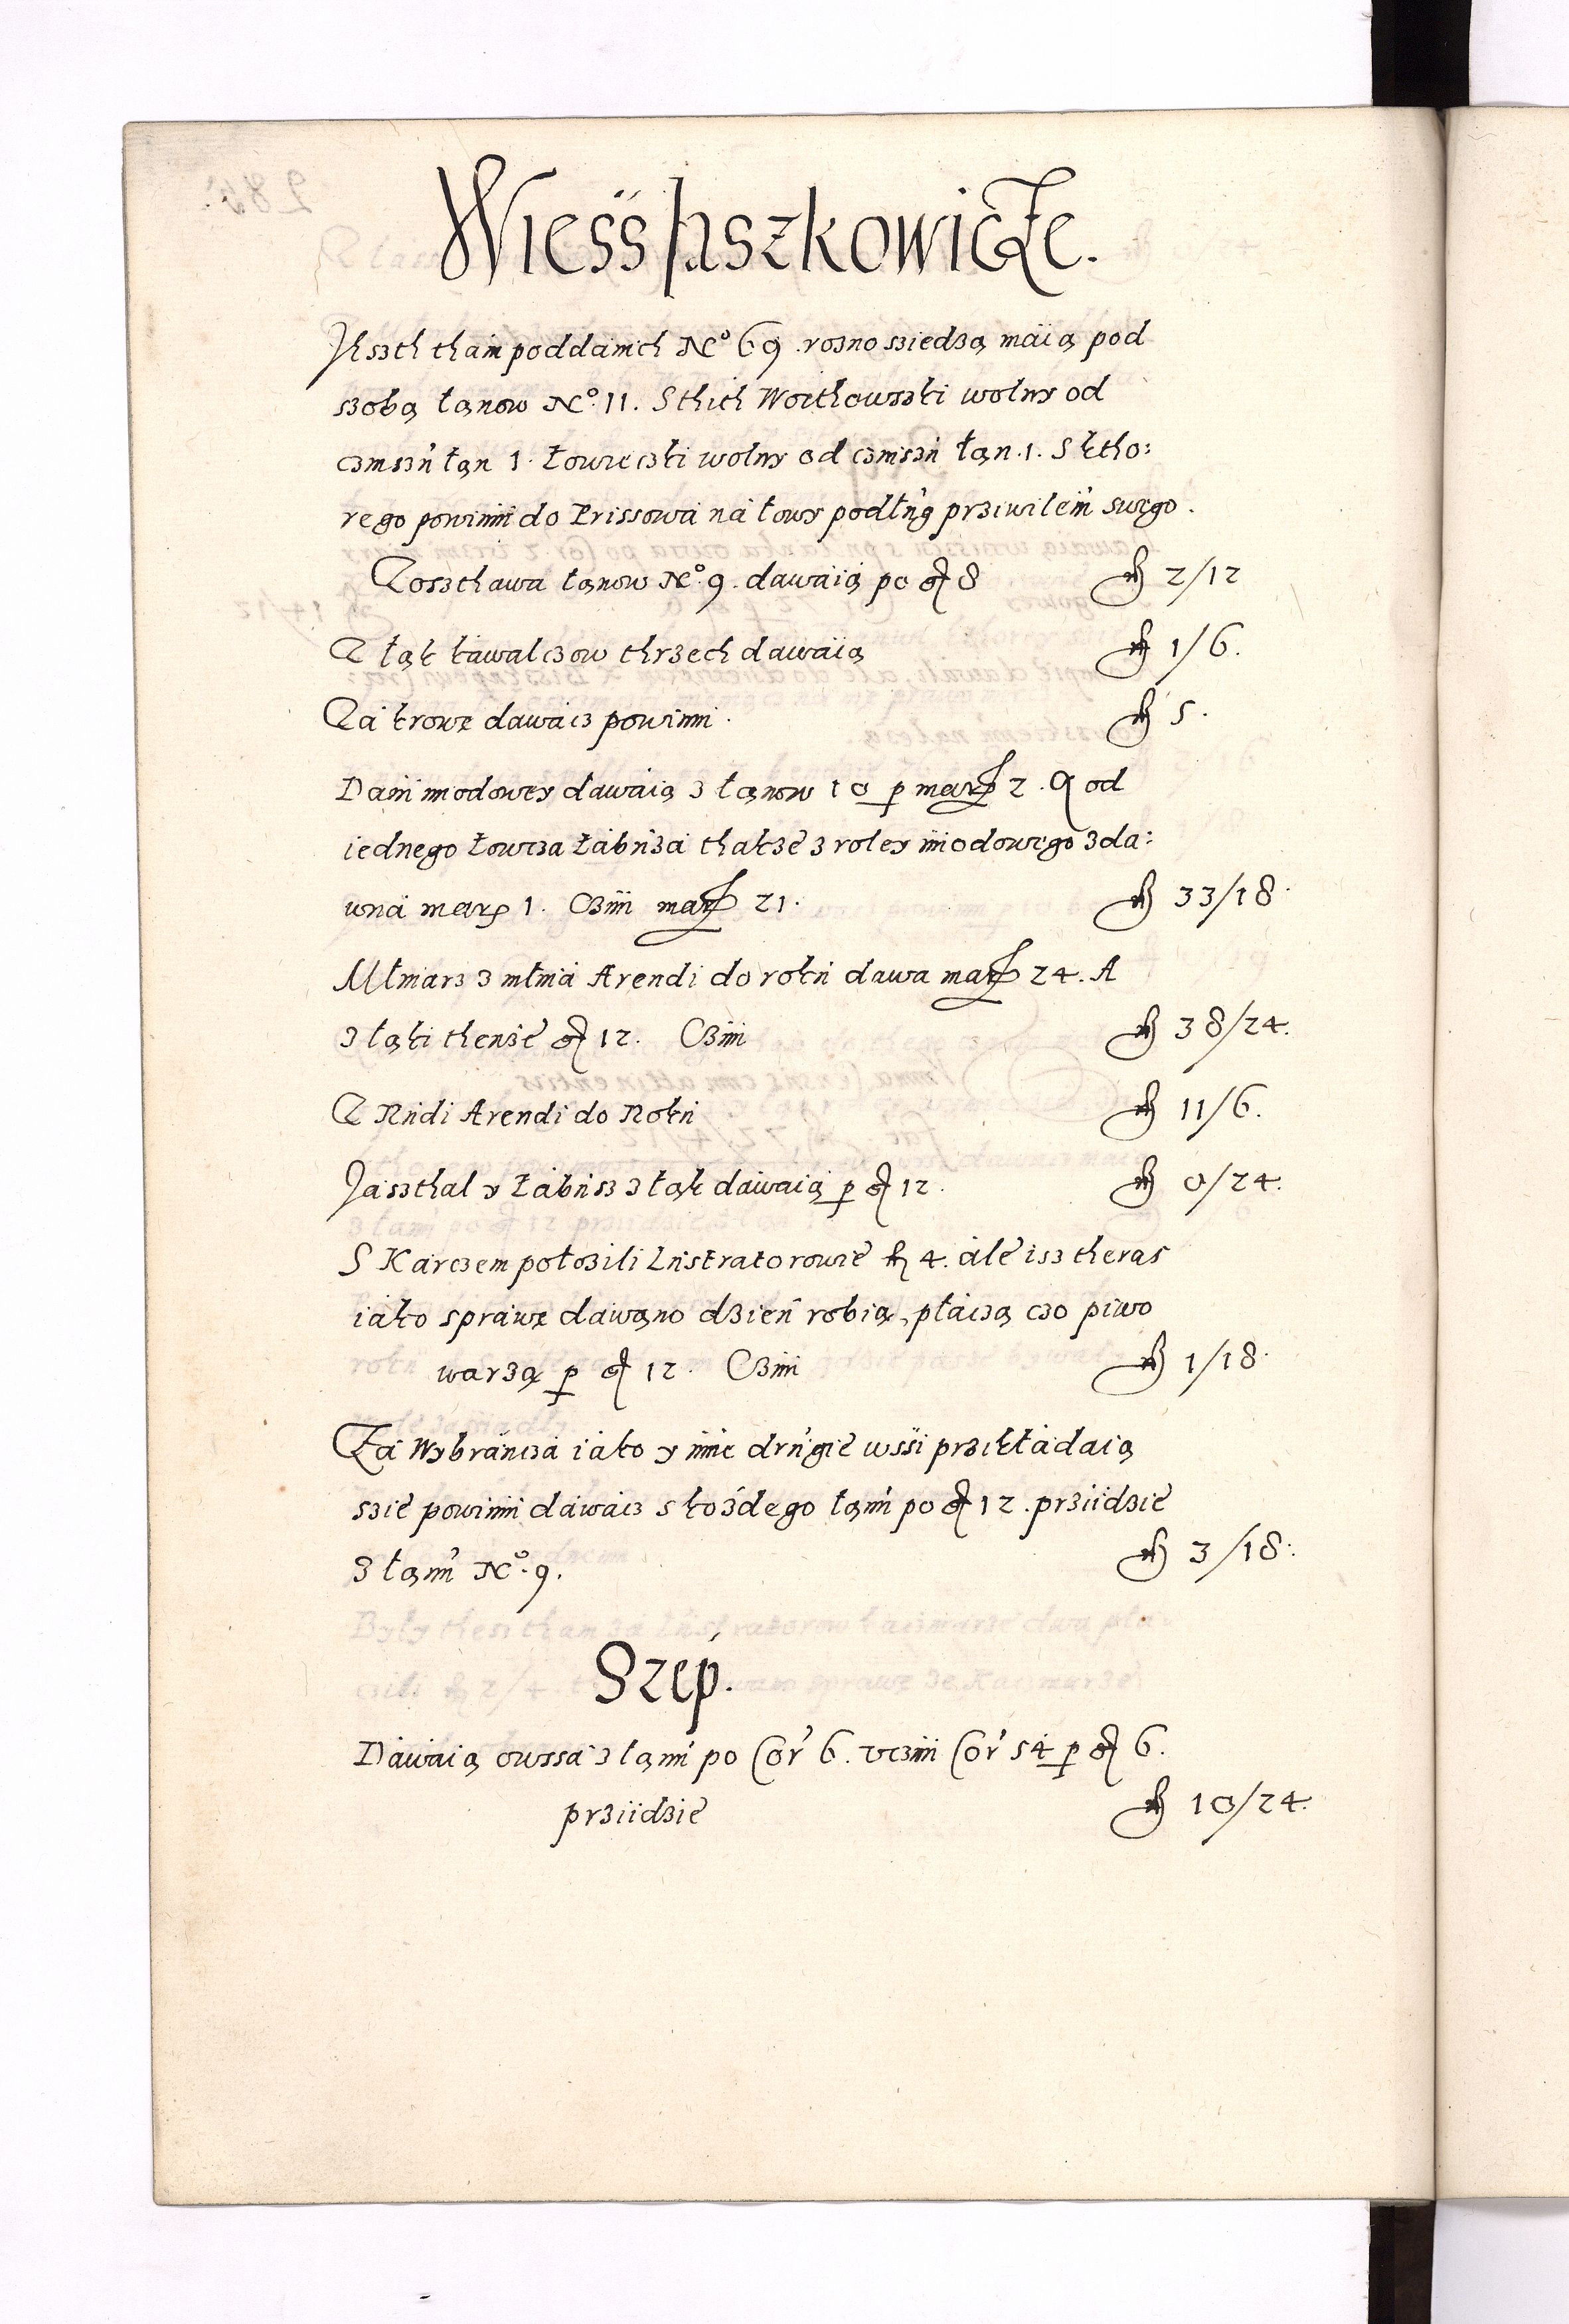 Wiess Jaszkowicze.
Jesth tham poddanich No 69. rozno siedzą maią pod
szobą łanow No. 11. S thich Woithowski wolny od
czinszu łan 1. Łowieczki wolny od czinszu łan. 1. S ktho:
rego powinni do Krissowa na łowy podług przywileiu swego.
Zosthawa łanow No. 9. dawaią po gr 8 fl 2/12
Z łąk kawalczow thrzech dawaią fl 1/6.
Za krowę dawacz powinni. fl 5.
Dani miodowey dawaią z łanow 10 p marg 2. A od
iednego Łowcza Łabuza thakze z roley miodowego zda:
wna marg 1. Czini marg 21. fl 33/18.
Młinarz z młina Arendi do roku dawa marg 24. A
z łąki thenze gr 12. Czini fl 38/24.
Z Rudi Arendi do Roku fl 11/6.
Jaszthal y Łabusz z łąk dawaią p gr 12. fl 0/24.
S Karczem połozili Lustratorowie fl 4. ale isz theras
iako sprawę dawano dzień robią, płaczą czo piwo
warzą p gr 12. Czini fl 1/18.
Za Wybrancza iako y inne drugie wssi przikładaią
szie powinni dawacz s kozdego łanu po gr 12. prziidzie
z łanu No. 9. fl 3/18.
Szep.
Dawaią owssa z łanu po Cor 6. uczini Cor 54 p gr 6.
prziidzie fl 10/24.